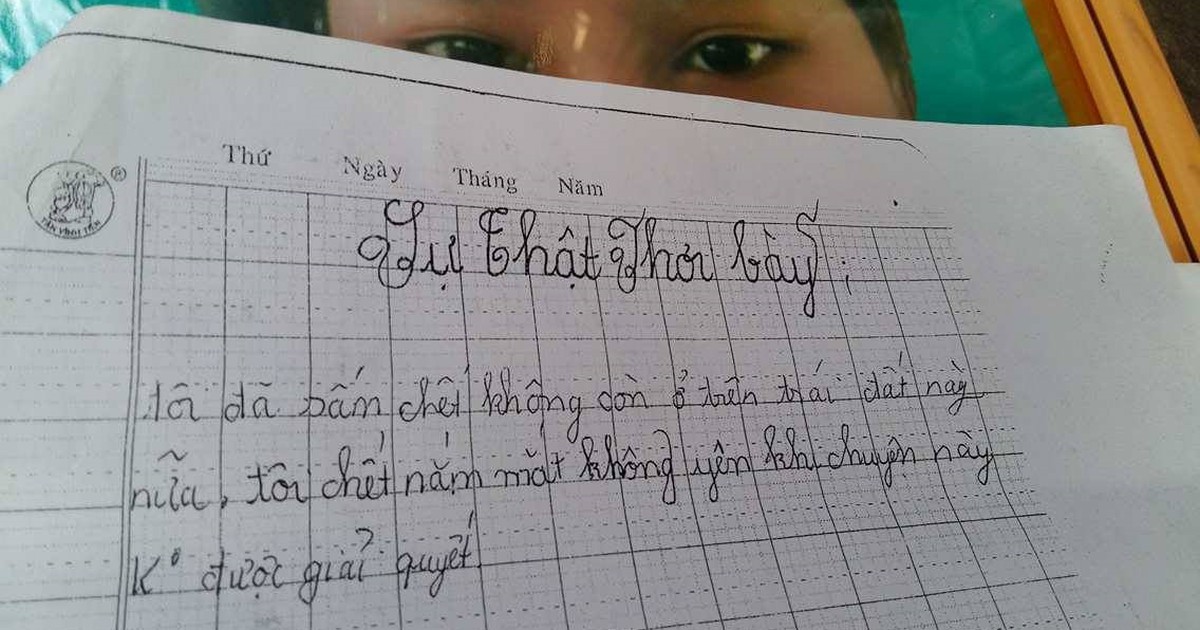 Thứ Ngày Tháng Năm
TÂN VĨNH TIẾN
®
Sự thật Phơi bày :
tôi đã bấm chết không còn ở trên trái đất này
nữa, tôi chết nắm mắt không yên khi chuyện này
K° được giải quyết